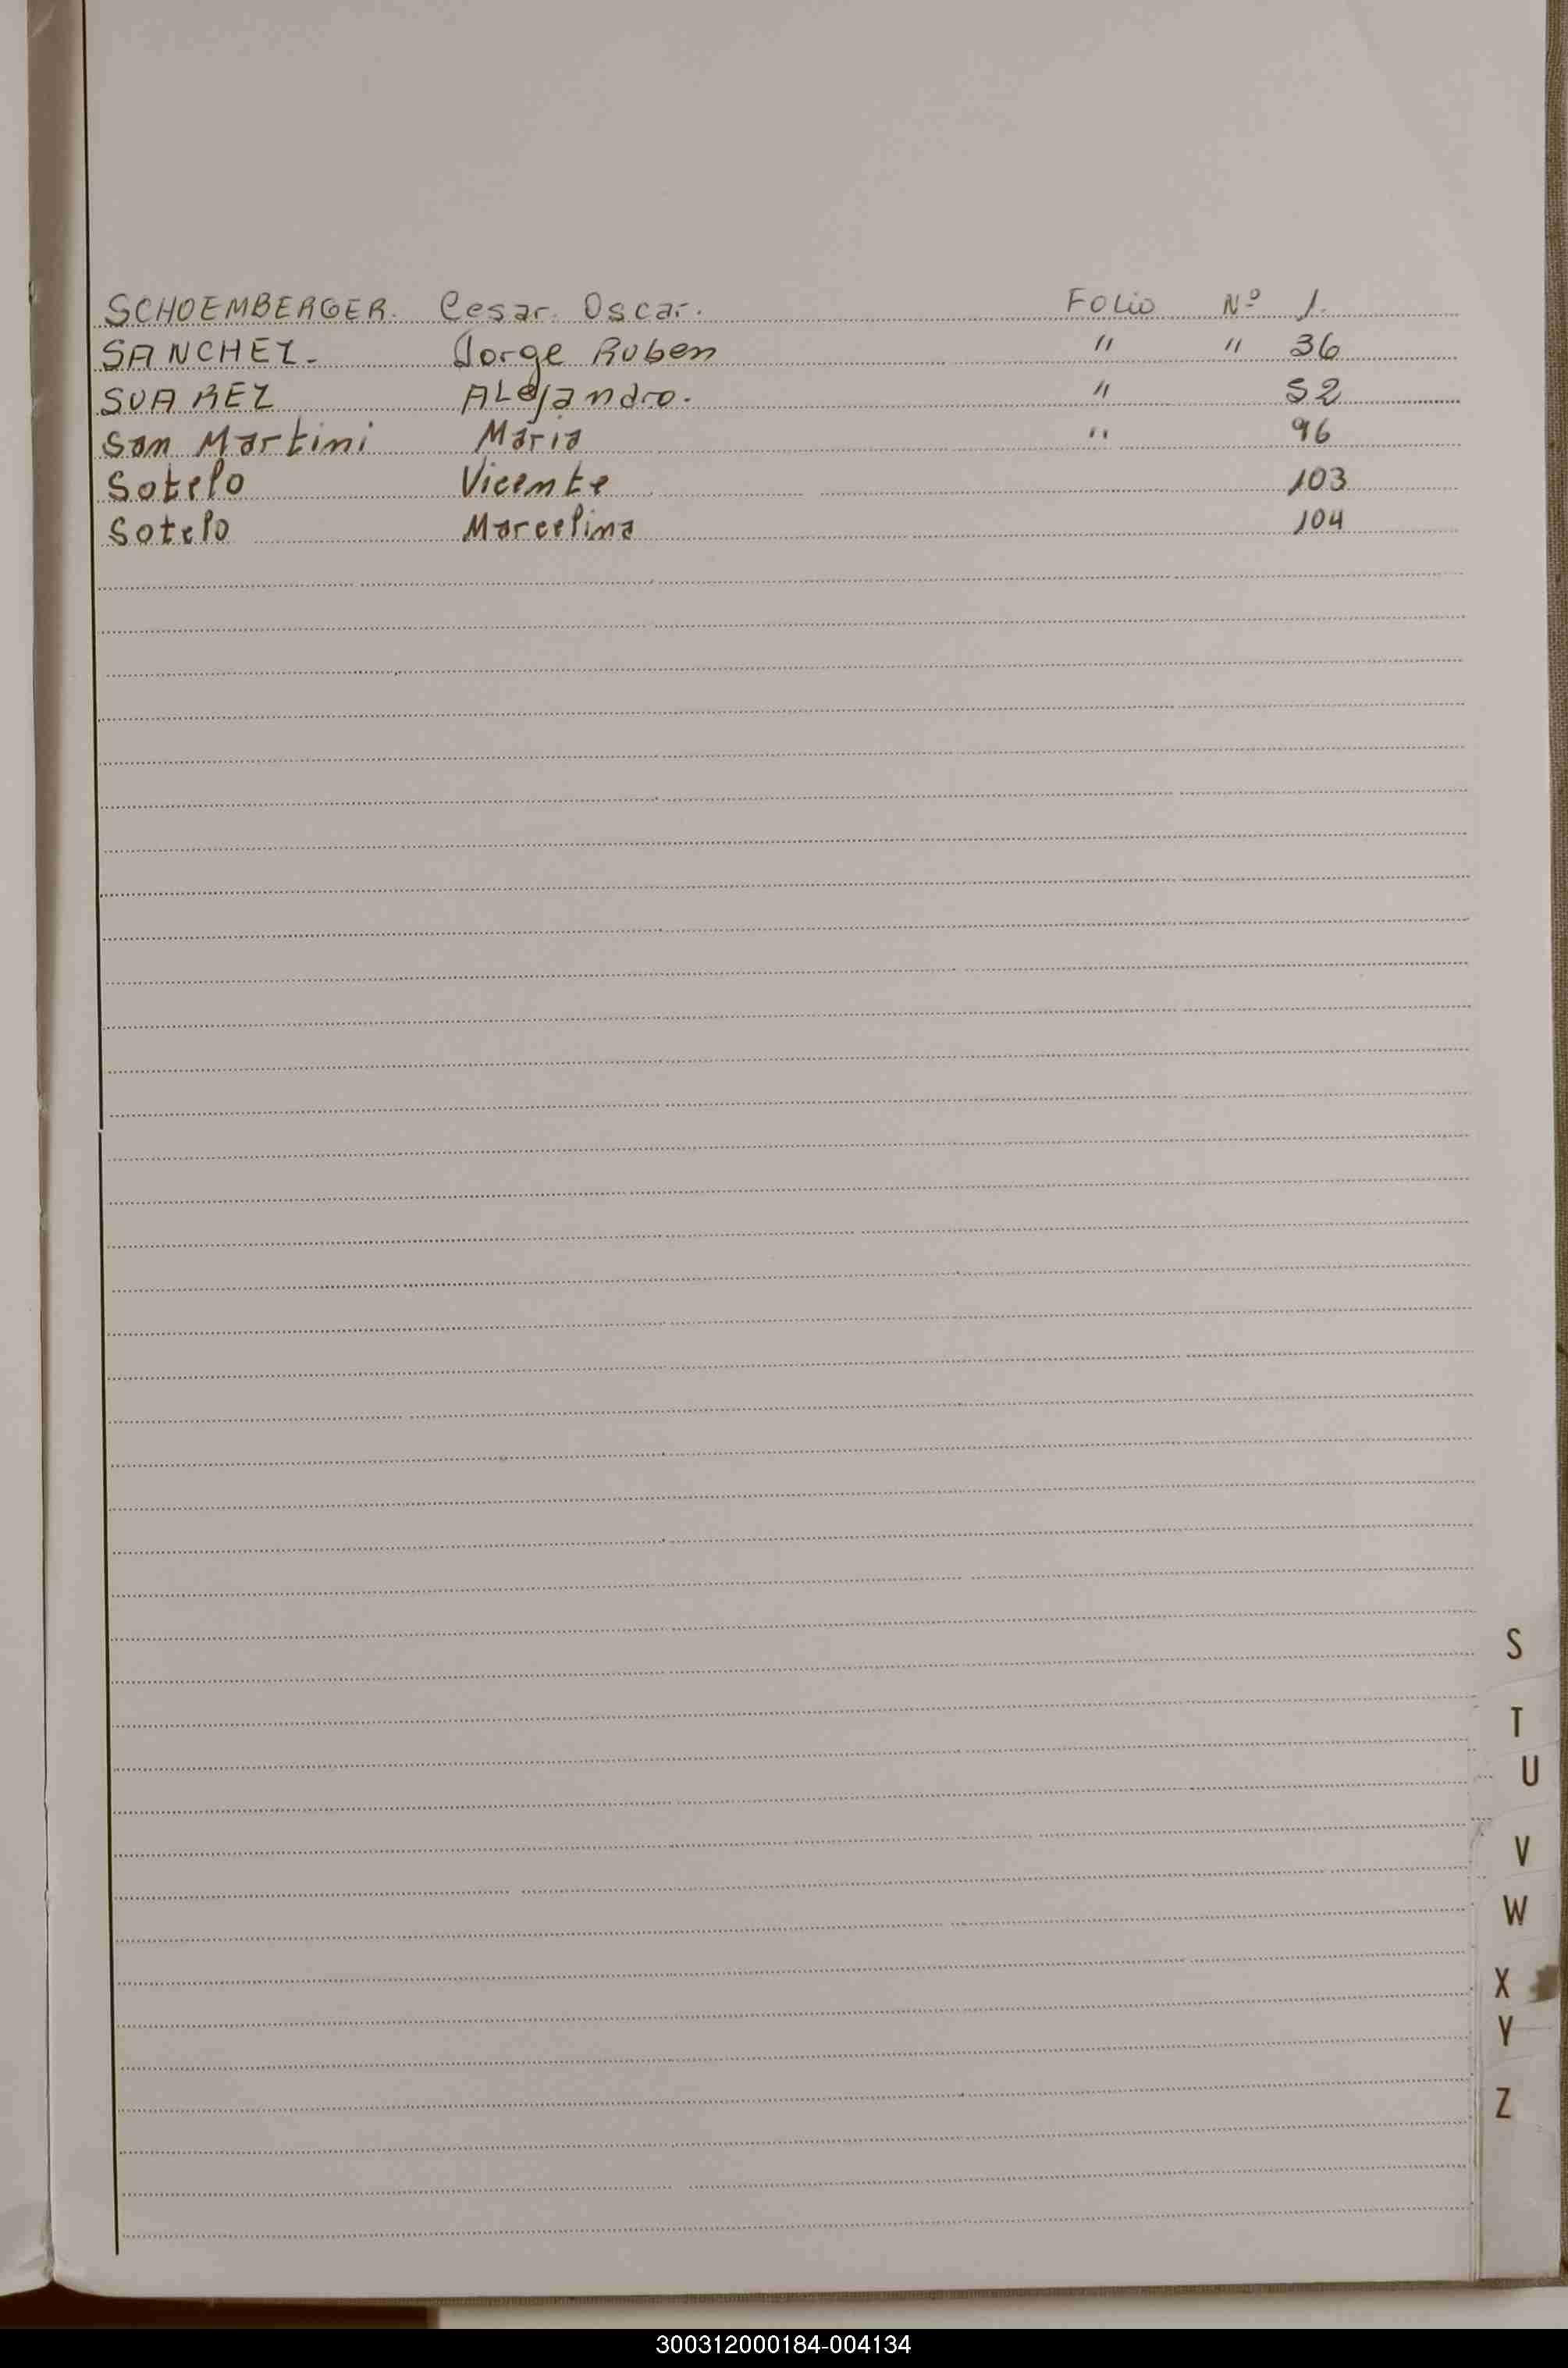 SCHOEMBERGER. Cesar. Oscar. Folio Nº 1.
SANCHEZ- Jorge Ruben " " 36
SUAREZ ALejandro. " 52
San Martini Maria " 96
Sotelo Vicente 103
Sotelo Marcelina 104
S
T
U
V
W
X
Y
Z
300312000184-004134